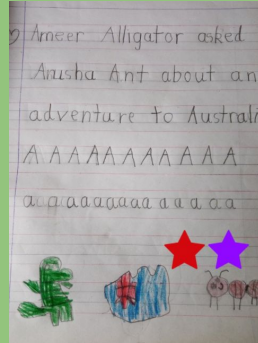 Ameer Alligator asked
Anusha Ant about an
adventure to Australi
A A A A A A A A A A A
a a a a a a a a a a a a a a